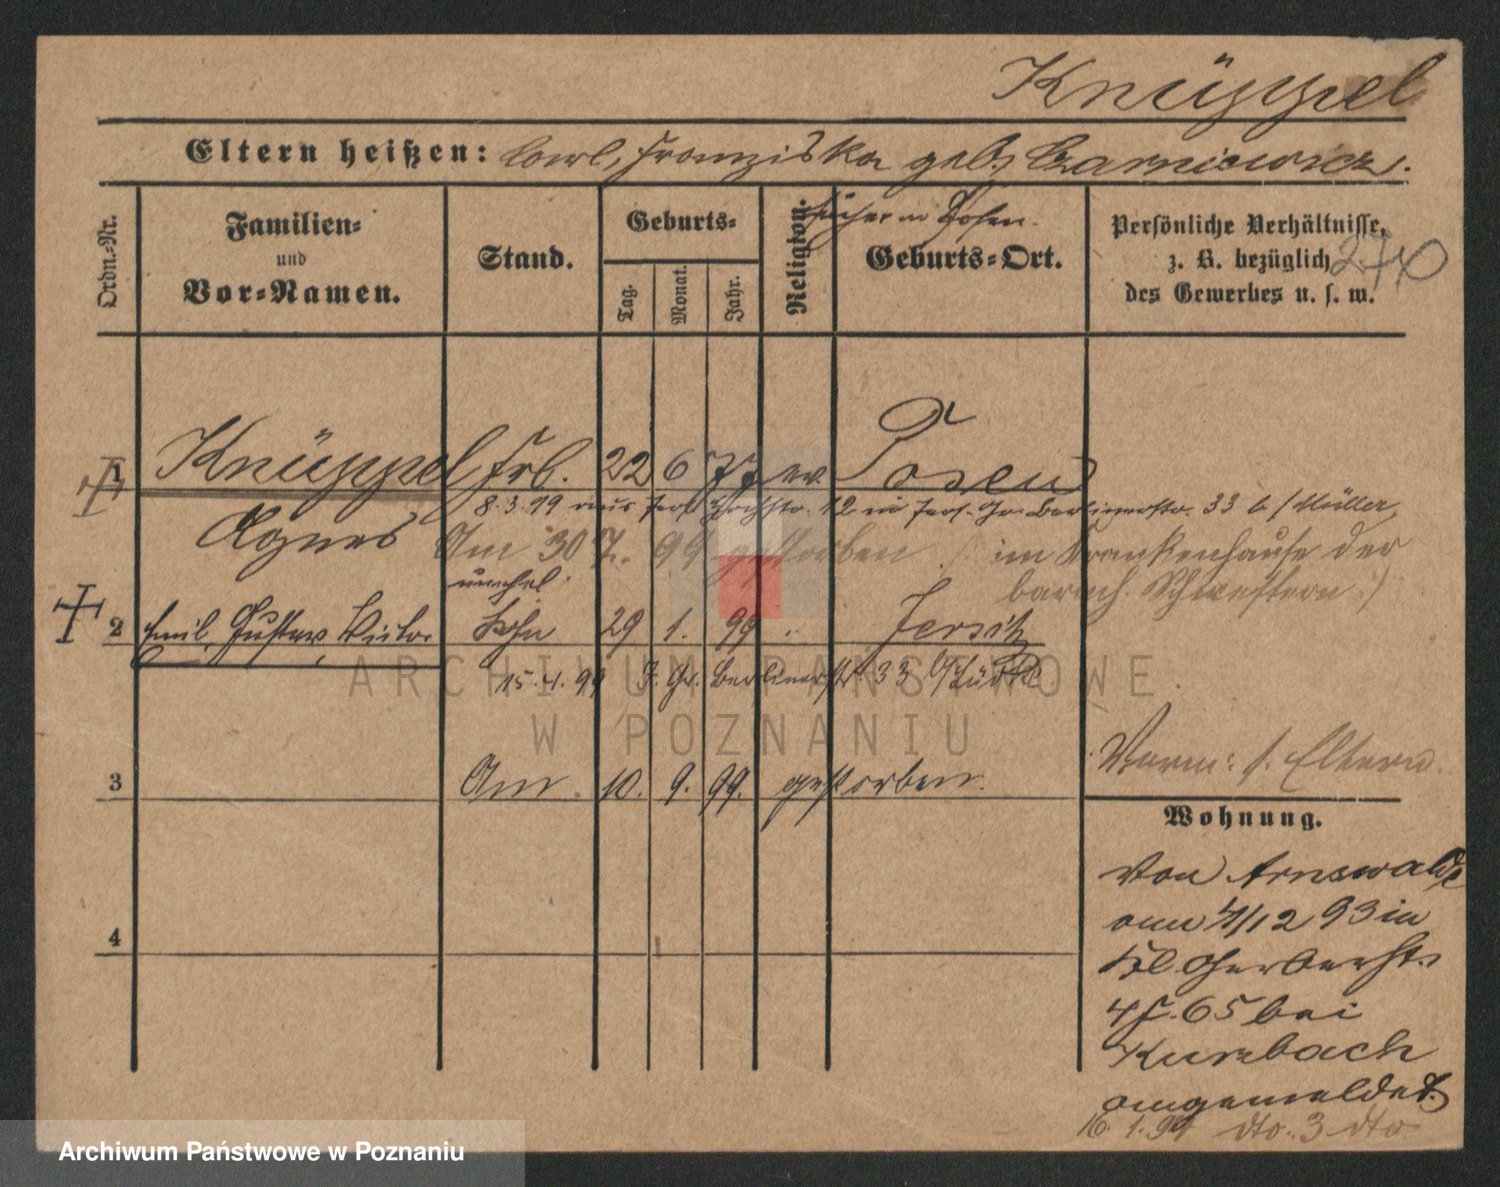 Knüppel
Eltern heißen: Carl, Franziska geb. Czarniewicz.
früher in Posen.
Ordn.-Nr.
Familien-
und
Vor-Namen.
Stand.
Geburts-
Tag.
Monat.
Jahr.
Religion.
Geburts-Ort.
Persönliche Verhältnisse,
z. B. bezüglich
des Gewerbes u. s. w.
1 Knüppel Frl. 22 6 77 ev. Posen
8.3.99 aus Jers. 12 in Jers. Gr. Berlinerstr. 33 b/Müller
Agnes
Am 30 7. 99 gestorben (: im Krankenhause der
barmh. Schwestern :)
unehel.
2 Emil, Gustav, Victor Sohn 29 1. 99 " Jersitz
15.4.99 J. Gr. Berlinerstr. 33
3 Am 10. 9. 99. gestorben.
4
Vorm: s. Eltern
Wohnung.
Von Arnswalde
am 4/12 93 in
Kl. Gerberstr.
4 J. 65 bei
Kurzbach
angemeldet.
16. 1. 94 dto. 3 dto
ARCHIWUM PAŃSTWOWE
W POZNANIU
Archiwum Państwowe w Poznaniu